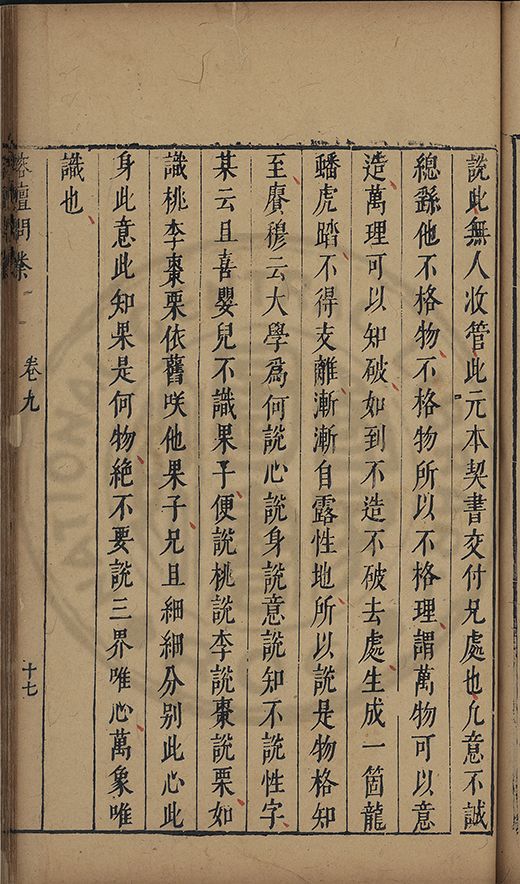 說此無人收管此元本契書交付兄處也凢意不誠
總繇他不格物不格物所以不格理謂萬物可以意
造萬理可以知破如到不造不破去處生成一箇龍
蟠虎踏不得支離漸漸自露性地所以說是物格知
至賡穆云大學爲何說心說身說意說知不說性字
某云且喜嬰兒不識果子便說桃說李說棗說栗如
識桃李棗栗依舊咲他果子兄且細細分別此心此
身此意此知果是何物絶不要說三界唯心萬象唯
識也
榕壇問業
卷九
十七